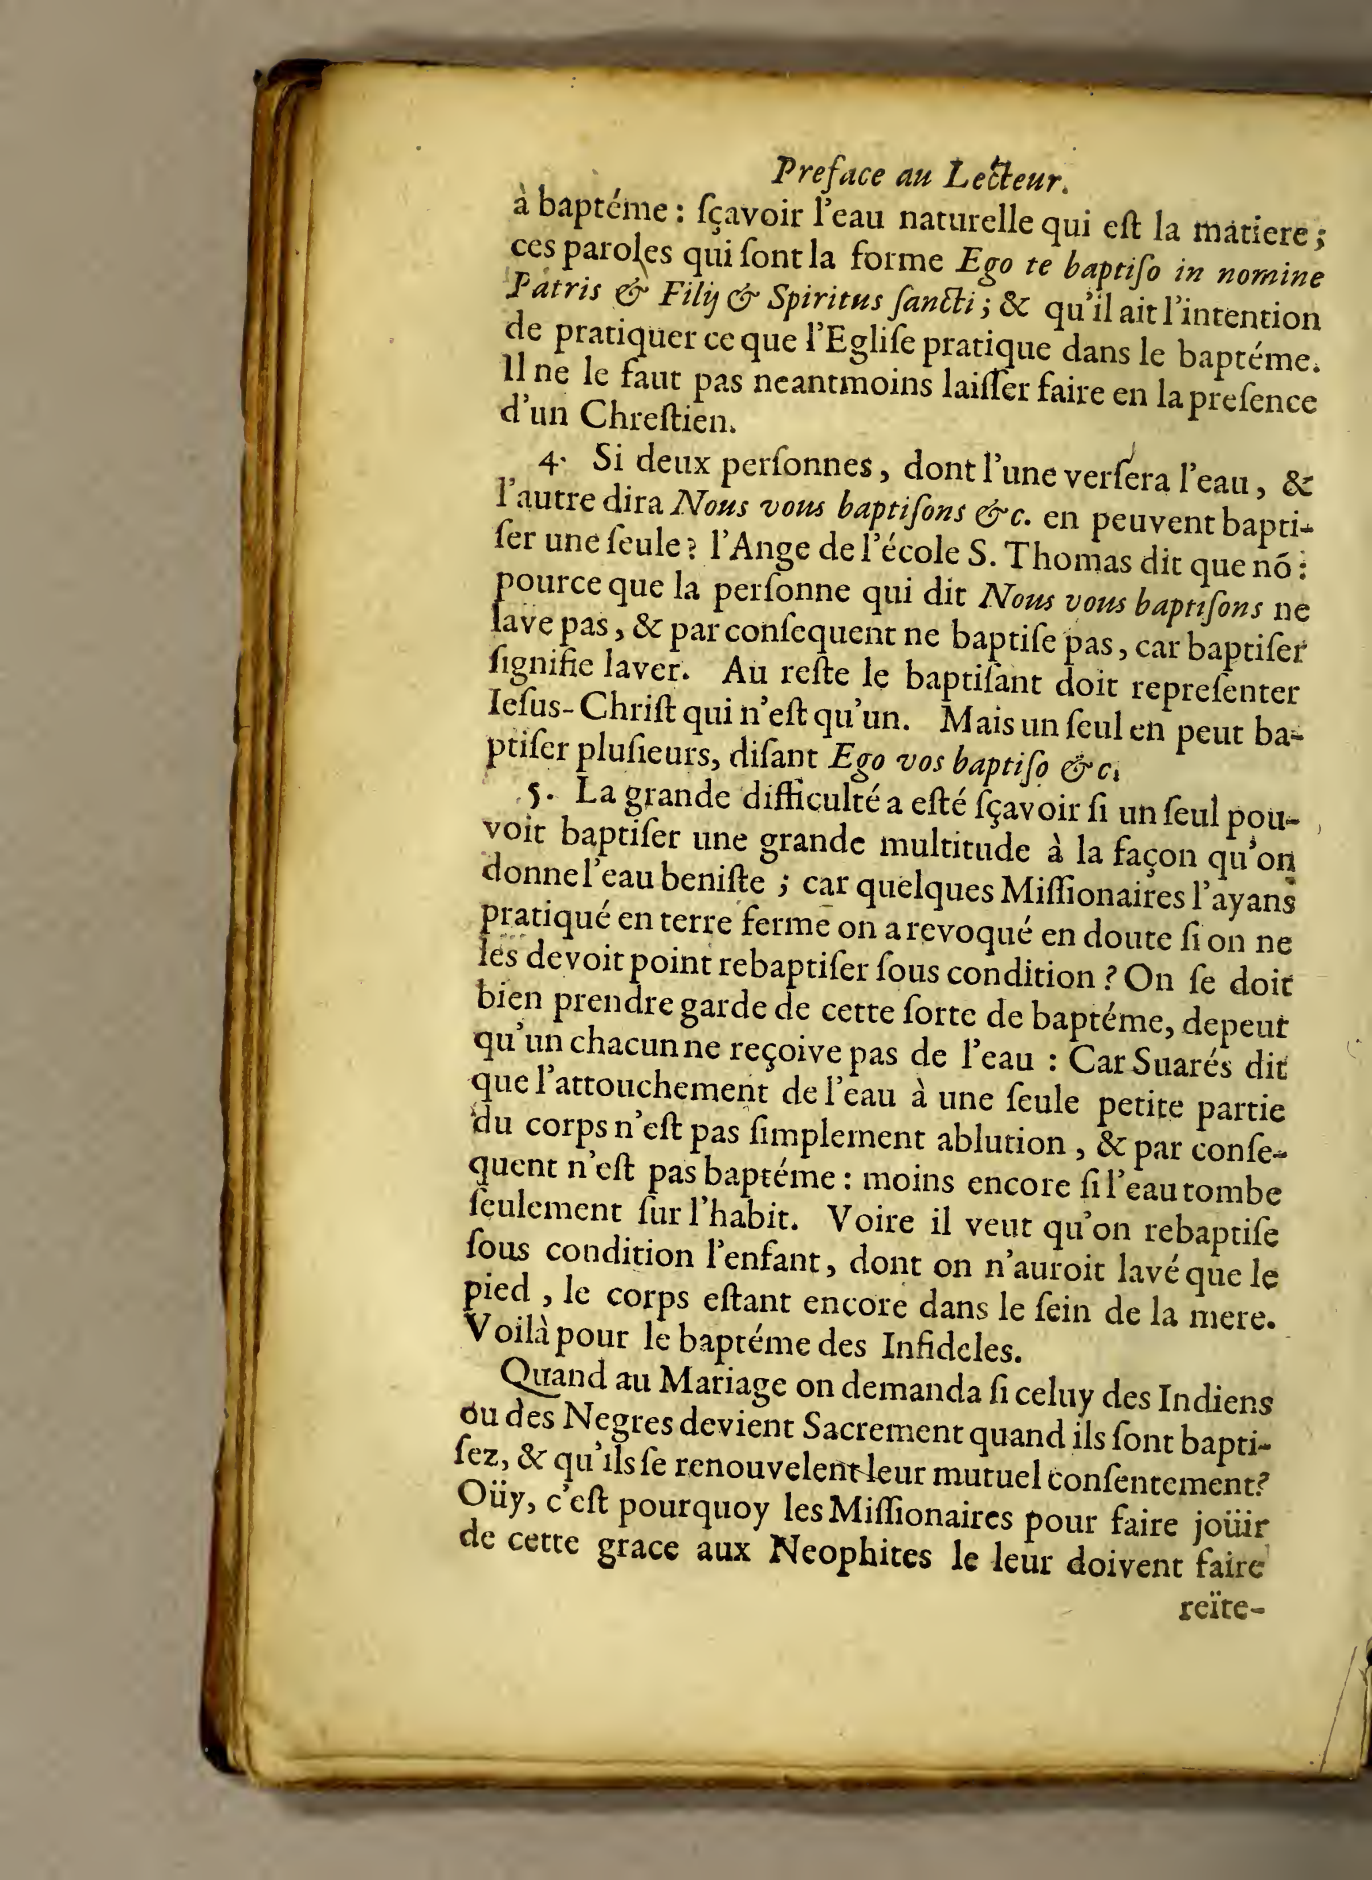 Preface au Lecteur.
à baptéme : ſçavoir l'eau naturelle qui eſt la matiere ;
ces paroles qui ſont la forme Ego te baptiſo in nomine
Patris & Filij & Spiritus ſancti ; & qu'il ait l'intention
de pratiquer ce que l'Egliſe pratique dans le baptéme.
Il ne le faut pas neantmoins laiſſer faire en la preſence
d'un Chreſtien.
4. Si deux perſonnes, dont l'une verſera l'eau, &
l'autre dira Nous vous baptiſons &c. en peuvent bapti-
ſer une ſeule ? l'Ange de l'école S. Thomas dit que nõ :
pource que la perſonne qui dit Nous vous baptiſons ne
lave pas, & par conſequent ne baptiſe pas, car baptiſer
ſignifie laver. Au reſte le baptiſant doit repreſenter
Ieſus-Chriſt qui n'eſt qu'un. Mais un ſeul en peut ba-
ptiſer pluſieurs, diſant Ego vos baptiſo &c.
5. La grande difficulté a eſté ſçavoir ſi un ſeul pou-
voit baptiſer une grande multitude à la façon qu'on
donne l'eau beniſte ; car quelques Miſſionaires l'ayans
pratiqué en terre ferme on a revoqué en doute ſi on ne
les devoit point rebaptiſer ſous condition ? On ſe doit
bien prendre garde de cette ſorte de baptéme, depeut
qu'un chacun ne reçoive pas de l'eau : Car Suarés dit
que l'attouchement de l'eau à une ſeule petite partie
du corps n'eſt pas ſimplement ablution, & par conſe-
quent n'eſt pas baptéme : moins encore ſi l'eau tombe
ſeulement ſur l'habit. Voire il veut qu'on rebaptiſe
ſous condition l'enfant, dont on n'auroit lavé que le
pied, le corps eſtant encore dans le ſein de la mere.
Voilà pour le baptéme des Infideles.
Quand au Mariage on demanda ſi celuy des Indiens
ou des Negres devient Sacrement quand ils ſont bapti-
ſez, & qu'ils ſe renouvelent leur mutuel conſentement?
Oüy, c'eſt pourquoy les Miſſionaires pour faire joüir
de cette grace aux Neophites le leur doivent faire
reïte-